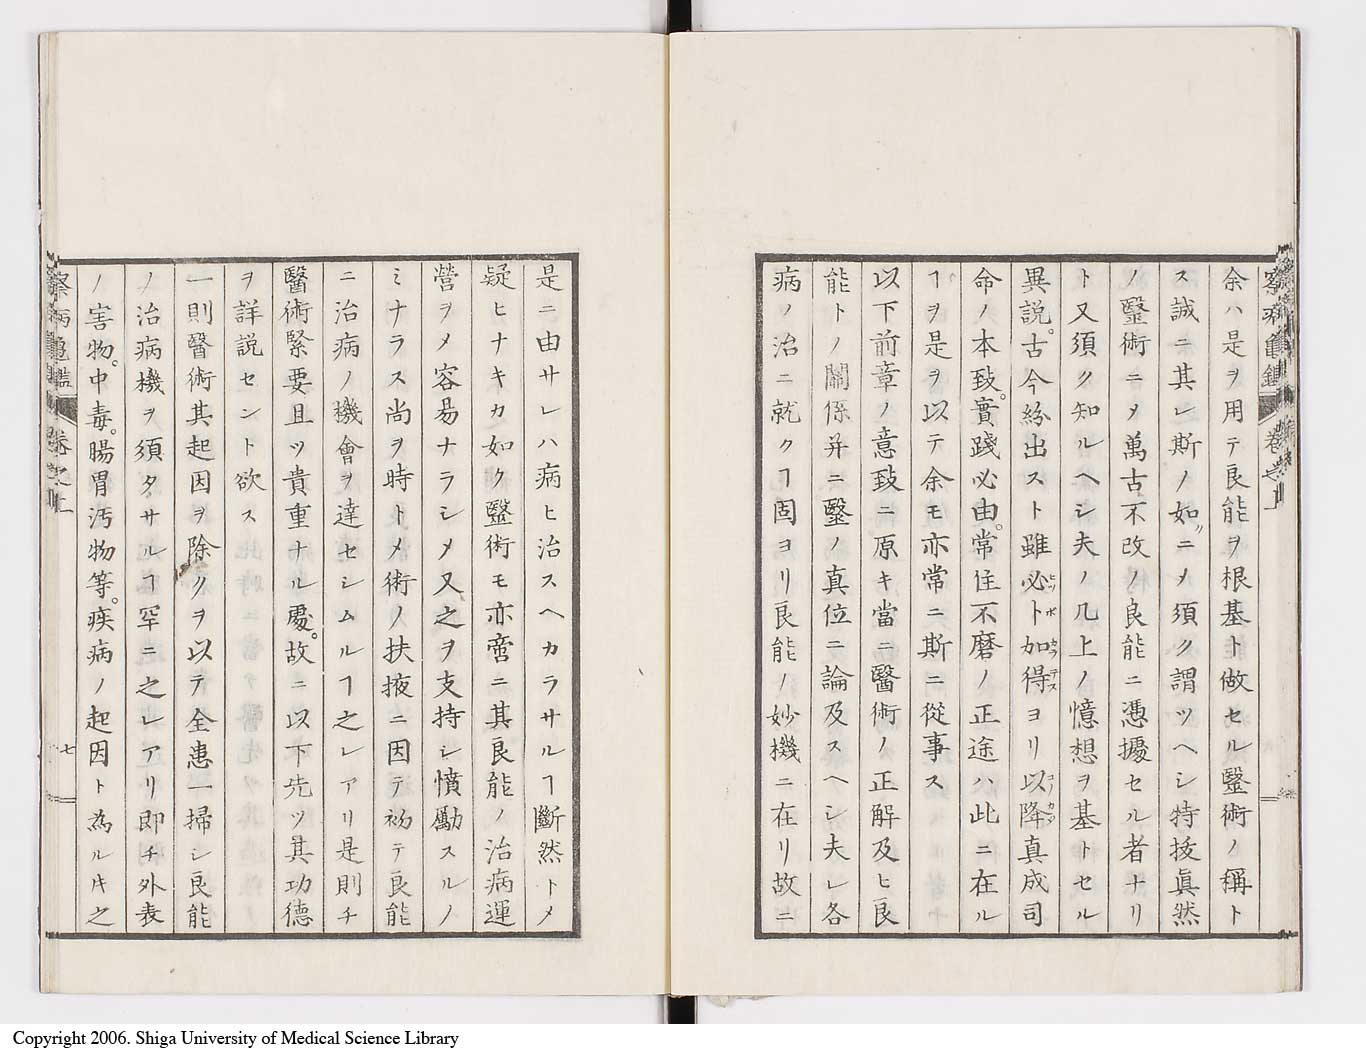 余ハ是ヲ用テ良能ヲ根基ト做セル毉術ノ稱ト
ス誠ニ其レ斯ノ如〃ニメ須ク謂ツヘシ特抜眞然
ノ毉術ニメ萬古不改ノ良能ニ憑據セル者ナリ
ト又須ク知ルヘシ夫ノ几上ノ憶想ヲ基トセル
異説。古今紛出スト雖必ト如得ヨリ以降真成司
命ノ本致。實踐必由。常住不磨ノ正途ハ此ニ在ル
ヿヲ是ヲ以テ余モ亦常ニ斯ニ從事ス
以下前章ノ意致ニ原キ當ニ醫術ノ正解及ヒ良
能トノ關係并ニ毉ノ真位ニ論及スヘシ夫レ各
病ノ治ニ就クヿ固ヨリ良能ノ妙機ニ在リ故ニ
是ニ由サレハ病ヒ治スヘカラサルヿ斷然トメ
疑ヒナキカ如ク毉術モ亦啻ニ其良能ノ治病運
營ヲメ容易ナラシメ又之ヲ支持シ憤勵スルノ
ミナラス尚ヲ時トメ術ノ扶掖ニ因テ初テ良能
ニ治病ノ機會ヲ達セシムルヿ之レアリ是則チ
醫術緊要且ツ貴重ナル處。故ニ以下先ツ其功德
ヲ詳説セント欲ス
一則醫術其起因ヲ除クヲ以テ全患一掃シ良能
ノ治病機ヲ須タサルヿ罕ニ之レアリ即チ外表
ノ害物。中毒。腸胃汚物等。疾病ノ起因ト為ル𪜈之
察病亀鑑
卷之上
七
Copyright 2006. Shiga University of Medical Science Library